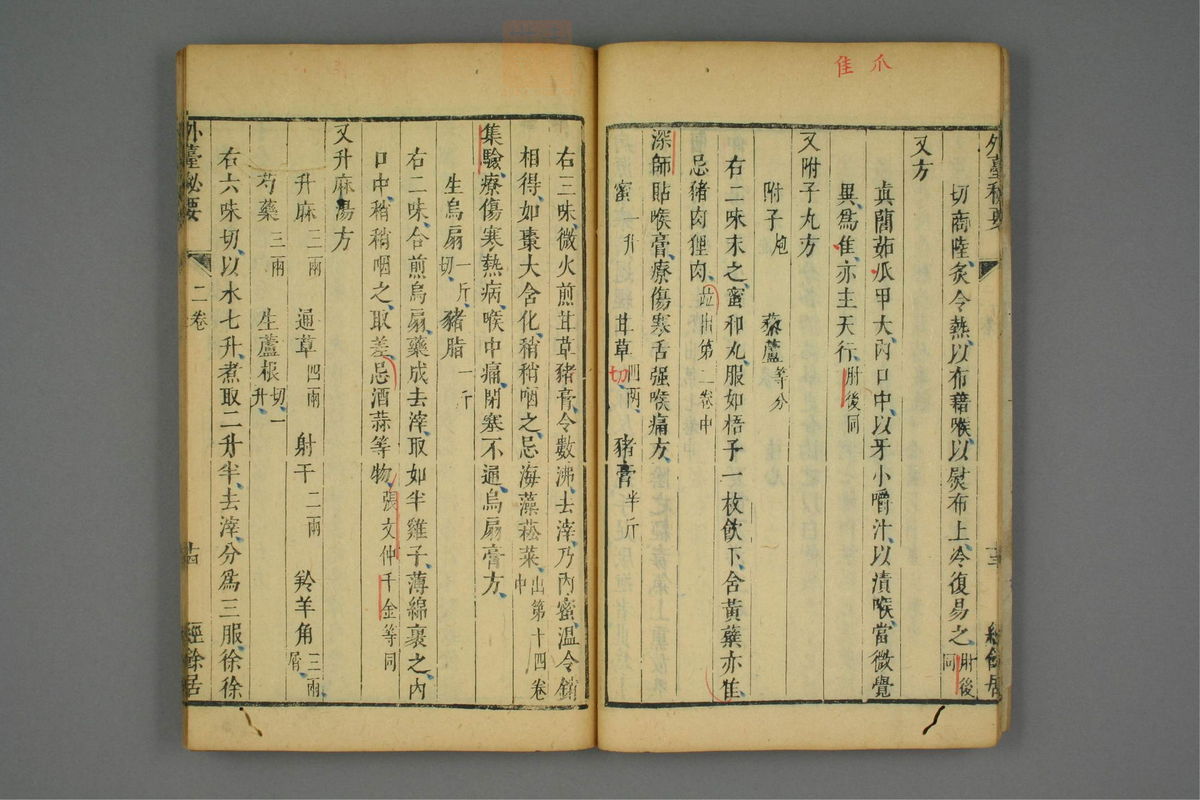 爪
隹
外臺秘要
十三
經餘居
切商陸炙令熱以布藉喉以熨布上冷復易之肘後同
又方
真䕡茹瓜甲大內口中以牙小嚼汁以漬喉當微覺
異爲隹亦主天行肘後同
又附子丸方
附子炮 藜蘆等分
右二味末之蜜和丸服如梧子一枚飲下含黃蘗亦隹
忌豬肉狸肉並出第二卷中
深師貼喉膏療傷寒舌强喉痛方
蜜一升 甘草四兩切 豬膏半斤
右三味微火煎甘草豬膏令數沸去滓乃內蜜溫令銷
相得如棗大含化稍稍咽之忌海藻菘菜出第十四卷中
集驗療傷寒熱病喉中痛閉塞不通烏扇膏方
生烏扇一斤切 豬脂一斤
右二味合煎烏扇藥成去滓取如半雞子薄綿裹之內
口中稍稍咽之取差忌酒蒜等物張文仲千金等同
又升麻湯方
升麻三兩 通草四兩 射干二兩 羚羊角三兩屑
芍藥三兩 生蘆根切一升
右六味切以水七升煮取二升半去滓分爲三服徐徐
外臺秘要
二卷
十四
經餘居